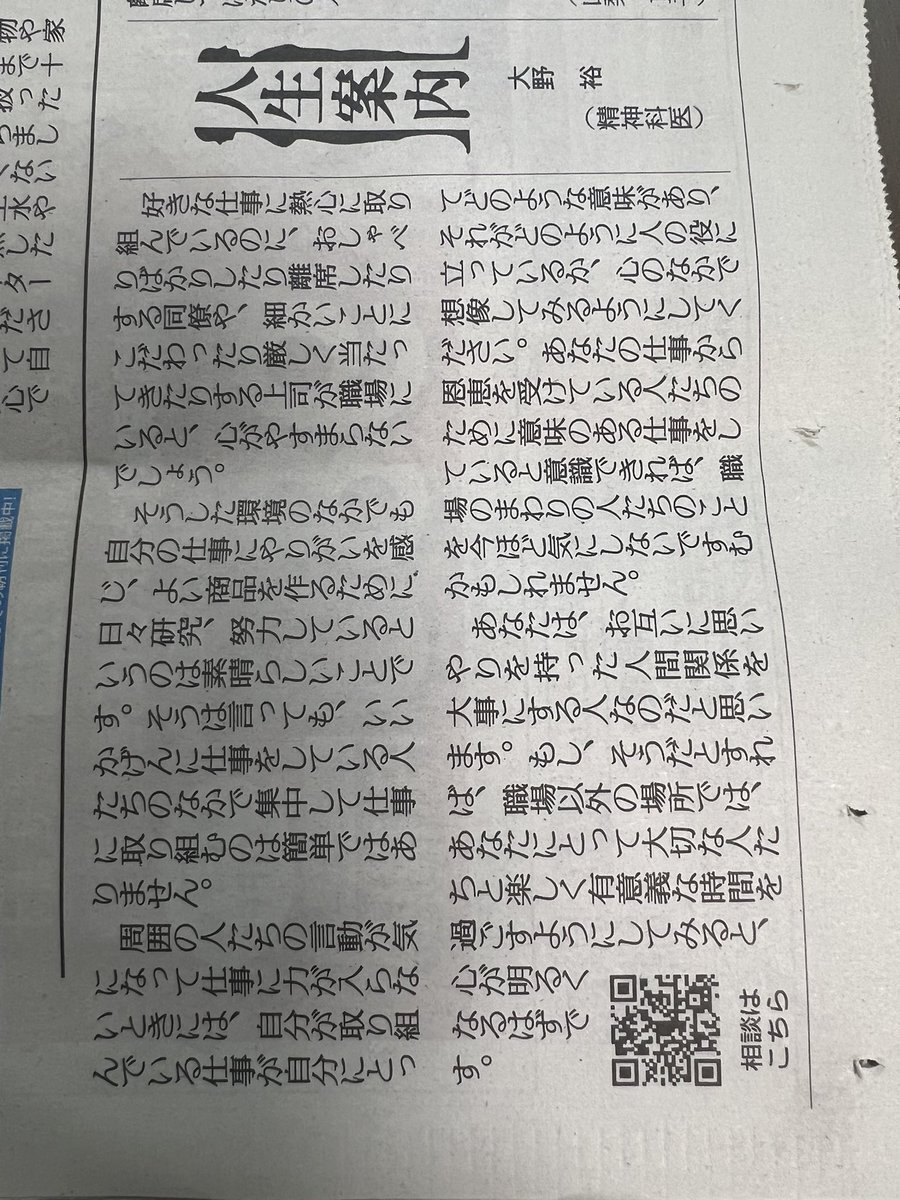 人生案内
大野 裕
(精神科医)
好きな仕事に熱心に取り
組んでいるのに、おしゃべ
りばかりしたり離席したり
する同僚や、細かいことに
こだわったり厳しく当たっ
てきたりする上司が職場に
いると、心がやすまらない
でしょう。
そうした環境のなかでも
自分の仕事にやりがいを感
じ、よい商品を作るために、
日々研究、努力していると
いうのは素晴らしいことで
す。そうは言っても、いい
かげんに仕事をしている人
たちのなかで集中して仕事
に取り組むのは簡単ではあ
りません。
周囲の人たちの言動が気
になって仕事に力が入らな
いときには、自分が取り組
んでいる仕事が自分にとっ
てどのような意味があり、
それがどのように人の役に
立っているか、心のなかで
想像してみるようにしてく
ださい。あなたの仕事から
恩恵を受けている人たちの
ために意味のある仕事をし
ていると意識できれば、職
場のまわりの人たちのこと
を今ほど気にしないですむ
かもしれません。
あなたは、お互いに思い
やりを持った人間関係を
大事にする人なのだと思い
ます。もし、そうだとすれ
ば、職場以外の場所では、
あなたにとって大切な人た
ちと楽しく有意義な時間を
過ごすようにしてみると、
心が明るく
なるはずで
す。
相談は
こちら
物や家
まで十
扱った
つまし
くない
水や
した
ター
ださ
て自
心で
朝刊に掲載中!